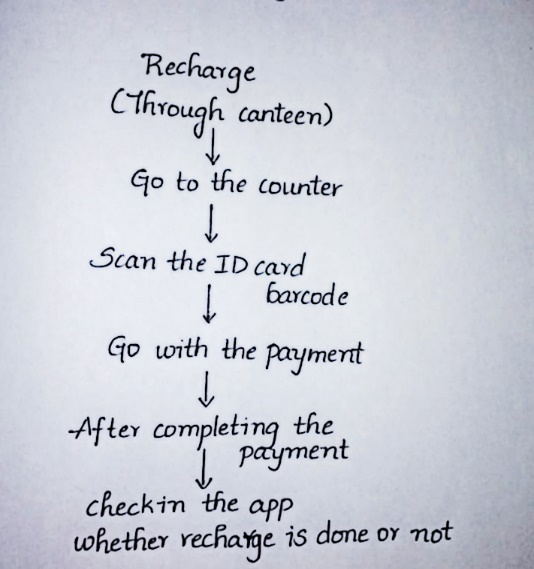 Recharge
(Through canteen)
Go to the counter
Scan the ID card
barcode
Go with the payment
After completing the
payment
checkin the app
whether recharge is done or not